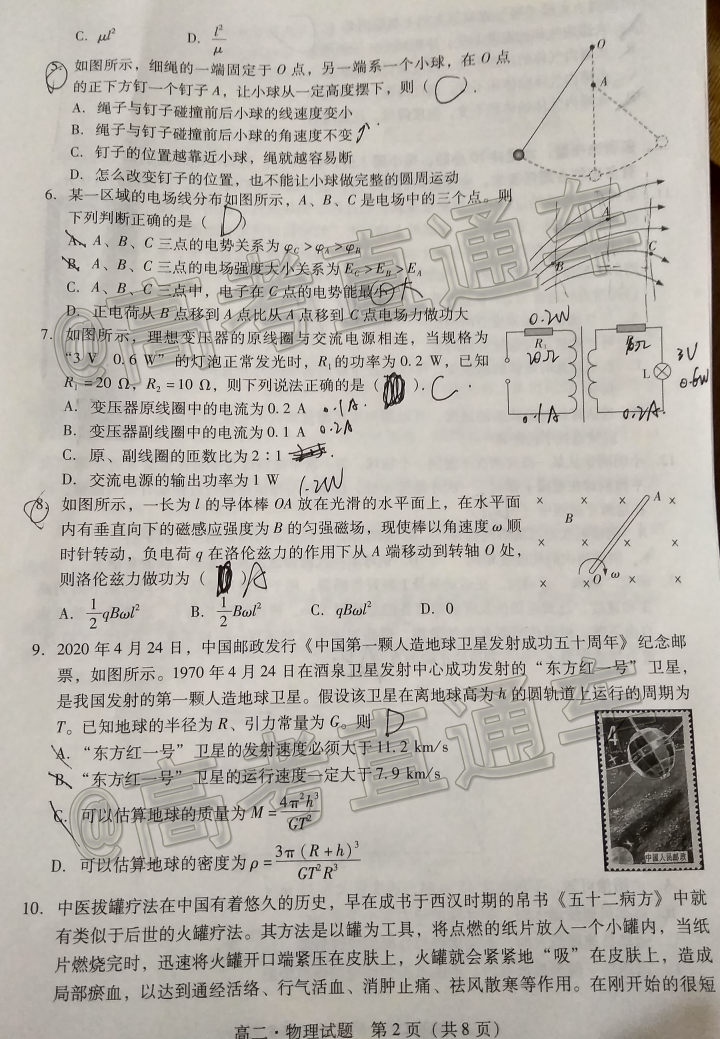 C. μl² D. l²/μ
5. 如图所示，细绳的一端固定于 O 点，另一端系一个小球，在 O 点
的正下方钉一个钉子 A，让小球从一定高度摆下，则（ ）.
A. 绳子与钉子碰撞前后小球的线速度变小
B. 绳子与钉子碰撞前后小球的角速度不变
C. 钉子的位置越靠近小球，绳就越容易断
D. 怎么改变钉子的位置，也不能让小球做完整的圆周运动
O
A
6. 某一区域的电场线分布如图所示，A、B、C 是电场中的三个点。则
下列判断正确的是（ D ）
A. A、B、C 三点的电势关系为 φC＞φA＞φB
B. A、B、C 三点的电场强度大小关系为 EC＞EB＞EA
C. A、B、C 三点中，电子在 C 点的电势能最大
D. 正电荷从 B 点移到 A 点比从 A 点移到 C 点电场力做功大
A
B
C
7. 如图所示，理想变压器的原线圈与交流电源相连，当规格为
“3 V 0.6 W”的灯泡正常发光时，R₁的功率为 0.2 W，已知
R₁＝20 Ω，R₂＝10 Ω，则下列说法正确的是（ ）. C
A. 变压器原线圈中的电流为 0.2 A 0.1A
B. 变压器副线圈中的电流为 0.1 A 0.2A
C. 原、副线圈的匝数比为 2∶1
D. 交流电源的输出功率为 1 W 1.2W
0.2W
R₁
20Ω
10Ω
L
3V
0.6W
0.1A
0.2A
8. 如图所示，一长为 l 的导体棒 OA 放在光滑的水平面上，在水平面
内有垂直向下的磁感应强度为 B 的匀强磁场，现使棒以角速度 ω 顺
时针转动，负电荷 q 在洛伦兹力的作用下从 A 端移动到转轴 O 处，
则洛伦兹力做功为（ ） A
A. 1/2 qBωl² B. 1/2 Bωl² C. qBωl² D. 0
A
B
O ω
9. 2020 年 4 月 24 日，中国邮政发行《中国第一颗人造地球卫星发射成功五十周年》纪念邮
票，如图所示。1970 年 4 月 24 日在酒泉卫星发射中心成功发射的“东方红一号”卫星，
是我国发射的第一颗人造地球卫星。假设该卫星在离地球高为 h 的圆轨道上运行的周期为
T。已知地球的半径为 R、引力常量为 G。则 D
A. “东方红一号”卫星的发射速度必须大于 11.2 km/s
B. “东方红一号”卫星的运行速度一定大于 7.9 km/s
C. 可以估算地球的质量为 M＝4π²h³/GT²
D. 可以估算地球的密度为 ρ＝3π（R＋h）³/GT²R³
中国人民邮政
10. 中医拔罐疗法在中国有着悠久的历史，早在成书于西汉时期的帛书《五十二病方》中就
有类似于后世的火罐疗法。其方法是以罐为工具，将点燃的纸片放入一个小罐内，当纸
片燃烧完时，迅速将火罐开口端紧压在皮肤上，火罐就会紧紧地“吸”在皮肤上，造成
局部瘀血，以达到通经活络、行气活血、消肿止痛、祛风散寒等作用。在刚开始的很短
高二·物理试题 第 2 页（共 8 页）
@高考直通车
@高考直通车